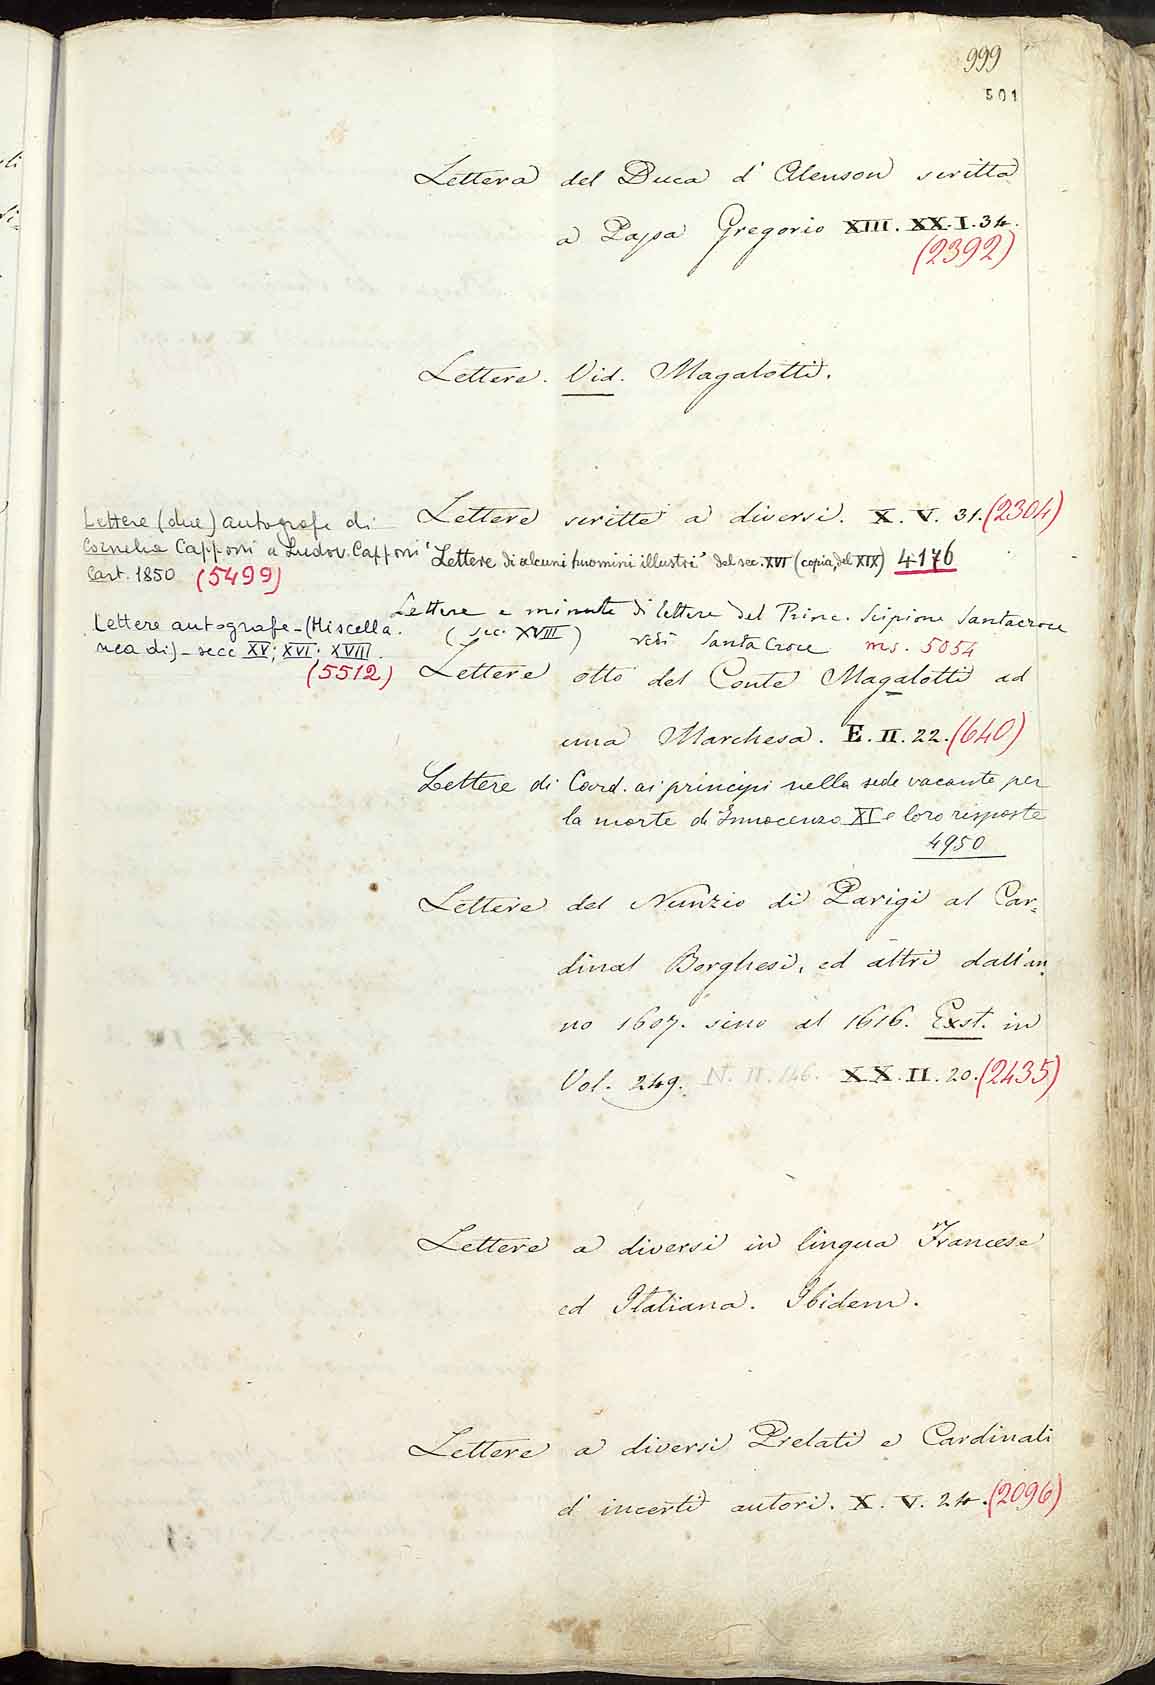 999
501
Lettera del Duca d' Alenson scritta
a Papa Gregorio XIII. XX. I. 34.
(2392)
Lettere. Vid. Magalotti.
Lettere scritte a diversi. X. V. 31. (2304)
"Lettere di alcuni huomini illustri" del sec. XVI (copia del XIX) 4176
Lettere e minute di lettere del Princ. Scipione Santacroce
(sec. XVIII) vedi Santa Croce ms. 5054
Lettere otto del Conte Magalotti ad
una Marchesa. E. II. 22. (640)
Lettere di Card. ai principi nella sede vacante per
la morte di Innocenzo XI e loro risposte
4950
Lettere del Nunzio di Parigi al Car=
dinal Borghesi, ed altri dall'an
no 1607. sino al 1616. Exst. in
Vol. 249. N. II. 146. XX. II. 20. (2435)
Lettere a diversi in lingua Francese
ed Italiana. Ibidem.
Lettere a diversi Prelati e Cardinali
d' incerti autori. X. V. 24. (2096)
Lettere (due) autografe di
Cornelia Capponi a Ludov. Capponi
Cart. 1850 (5499)
Lettere autografe - (Miscella
nea di) - secc XV; XVI; XVIII.
(5512)